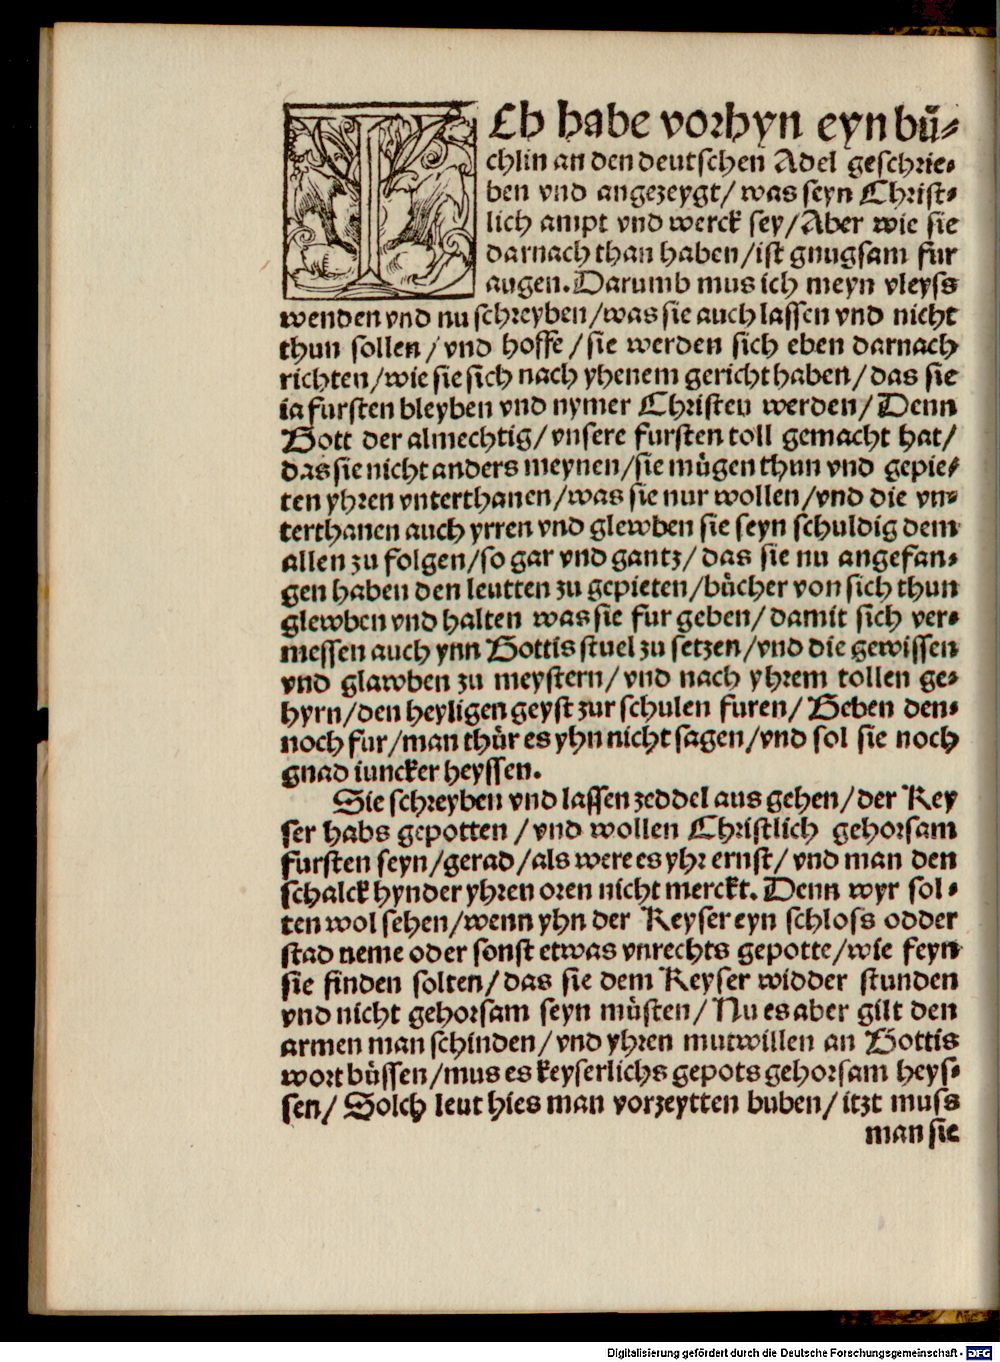 ICh habe vorhyn eyn bü⸗
chlin an den deutschen Adel geschrie⸗
ben vnd angezeygt/ was seyn Christ⸗
lich ampt vnd werck sey/Aber wie sie
darnach than haben/ist gnugsam fur
augen.Darumb mus ich meyn vleyss
wenden vnd nu schreyben/was sie auch lassen vnd nicht
thun sollen/vnd hoffe/sie werden sich eben darnach
richten/wie sie sich nach yhenem gericht haben/das sie
ia fursten bleyben vnd nymer Christen werden/Denn
Gott der almechtig/vnsere fursten toll gemacht hat/
das sie nicht anders meynen/sie mügen thun vnd gepie⸗
ten yhren vnterthanen/was sie nur wollen/vnd die vn⸗
terthanen auch yrren vnd glewben sie seyn schuldig dem
allen zu folgen/so gar vnd gantz/das sie nu angefan⸗
gen haben den leutten zu gepieten/bücher von sich thun
glewben vnd halten was sie fur geben/damit sich ver⸗
messen auch ynn Gottis stuel zu setzen/vnd die gewissen
vnd glawben zu meystern/vnd nach yhrem tollen ge⸗
hyrn/den heyligen geyst zur schulen furen/Geben den⸗
noch fur/man thür es yhn nicht sagen/vnd sol sie noch
gnad iuncker heyssen.
Sie schreyben vnd lassen zeddel aus gehen/der Key
ser habs gepotten/vnd wollen Christlich gehorsam
fursten seyn/gerad/als were es yhr ernst/vnd man den
schalck hynder yhren oren nicht merckt.Denn wyr sol⸗
ten wol sehen/wenn yhn der Keyser eyn schloss odder
stad neme oder sonst etwas vnrechts gepotte/wie feyn
sie finden solten/das sie dem Keyser widder stunden
vnd nicht gehorsam seyn müsten/Nu es aber gilt den
armen man schinden/vnd yhren mutwillen an Gottis
wort büssen/mus es keyserlichs gepots gehorsam heys⸗
sen/Solch leut hies man vorzeytten buben/itzt muss
man sie
Digitalisierung gefördert durch die Deutsche Forschungsgemeinschaft - DFG